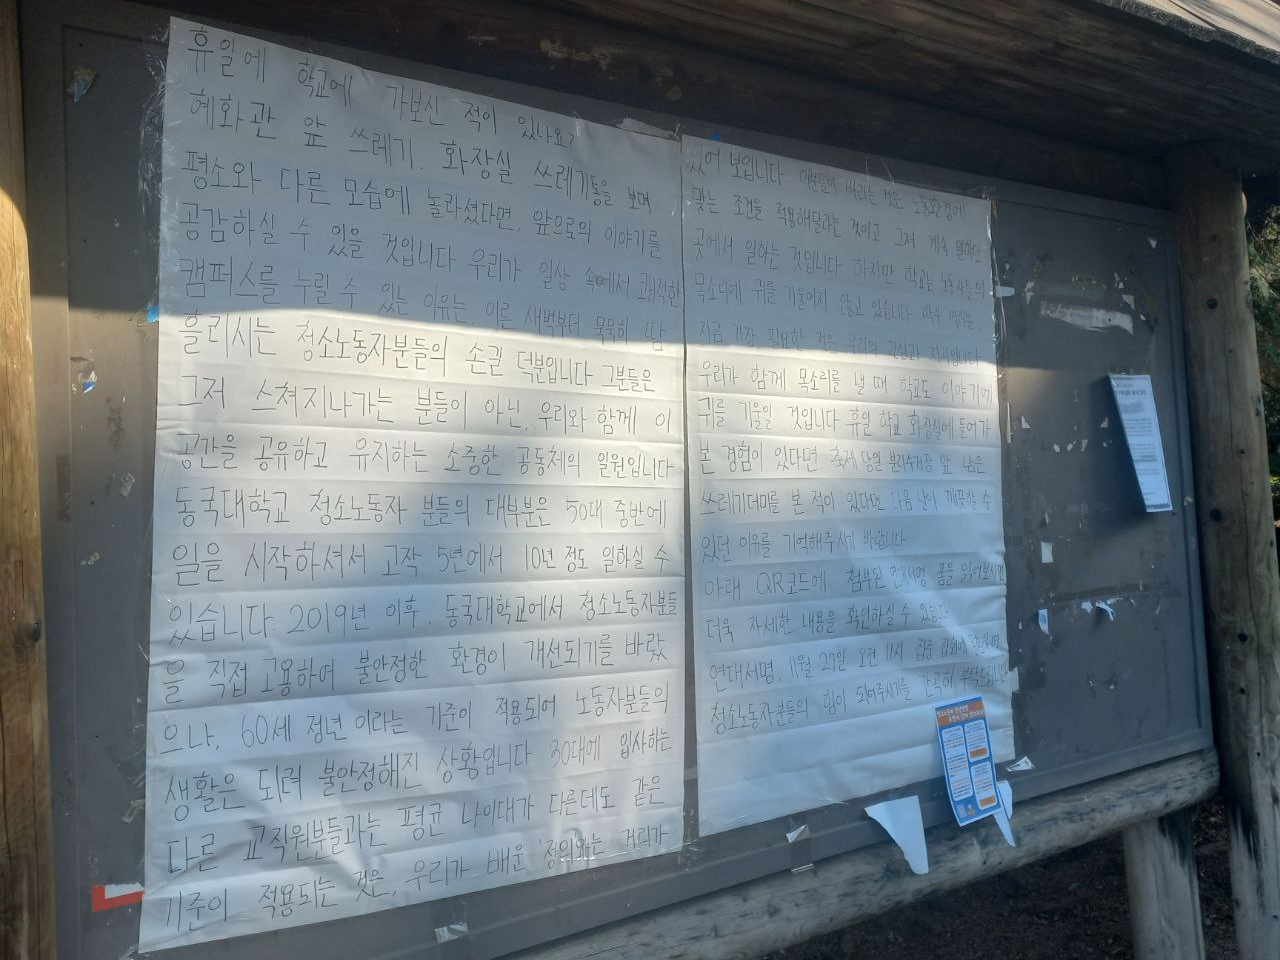 휴일에 학교에 가보신 적이 있나요?
혜화관 앞 쓰레기, 화장실 쓰레기통을 보며
평소와 다른 모습에 놀라셨다면, 앞으로의 이야기를
공감하실 수 있을 것입니다 우리가 일상 속에서 쾌적한
캠퍼스를 누릴 수 있는 이유는, 이른 새벽부터 묵묵히 땀
흘리시는 청소노동자분들의 손길 덕분입니다 그분들은
그저 스쳐지나가는 분들이 아닌, 우리와 함께 이
공간을 공유하고 유지하는 소중한 공동체의 일원입니다
동국대학교 청소노동자 분들의 대부분은 50대 중반에
일을 시작하셔서 고작 5년에서 10년 정도 일하실 수
있습니다. 2019년 이후, 동국대학교에서 청소노동자분들
을 직접 고용하여 불안정한 환경이 개선되기를 바랐
으나, 60세 정년 이라는 기준이 적용되어 노동자분들의
생활은 되려 불안정해진 상황입니다 30대에 입사하는
다른 교직원분들과는 평균 나이대가 다른데도 같은
기준이 적용되는 것은, 우리가 배운 '정의'와는 거리가
있어 보입니다 이분들이 바라는 것은 노동환경에
맞는 조건을 적용해달라는 것이고, 그저 계속 일하던
곳에서 일하는 것입니다 하지만 학교는 노동자들의
목소리에 귀를 기울이지 않고 있습니다
지금 가장 필요한 것은 우리의 관심과 지지입니다
우리가 함께 목소리를 낼 때 학교도 이야기에
귀를 기울일 것입니다 휴일 학교 화장실에 들어가
본 경험이 있다면 축제 당일 분리수거장 앞
쓰레기더미를 본 적이 있다면 다음 날이 깨끗할 수
있던 이유를 기억해주시기 바랍니다
아래 QR코드에 첨부된 연대서명 폼을 읽어보시면
더욱 자세한 내용을 확인하실 수 있습니다
연대서명, 11월 27일 오전 11시 집중 집회에
청소노동자분들의 힘이 되어주시기를 간곡히 부탁드립니다